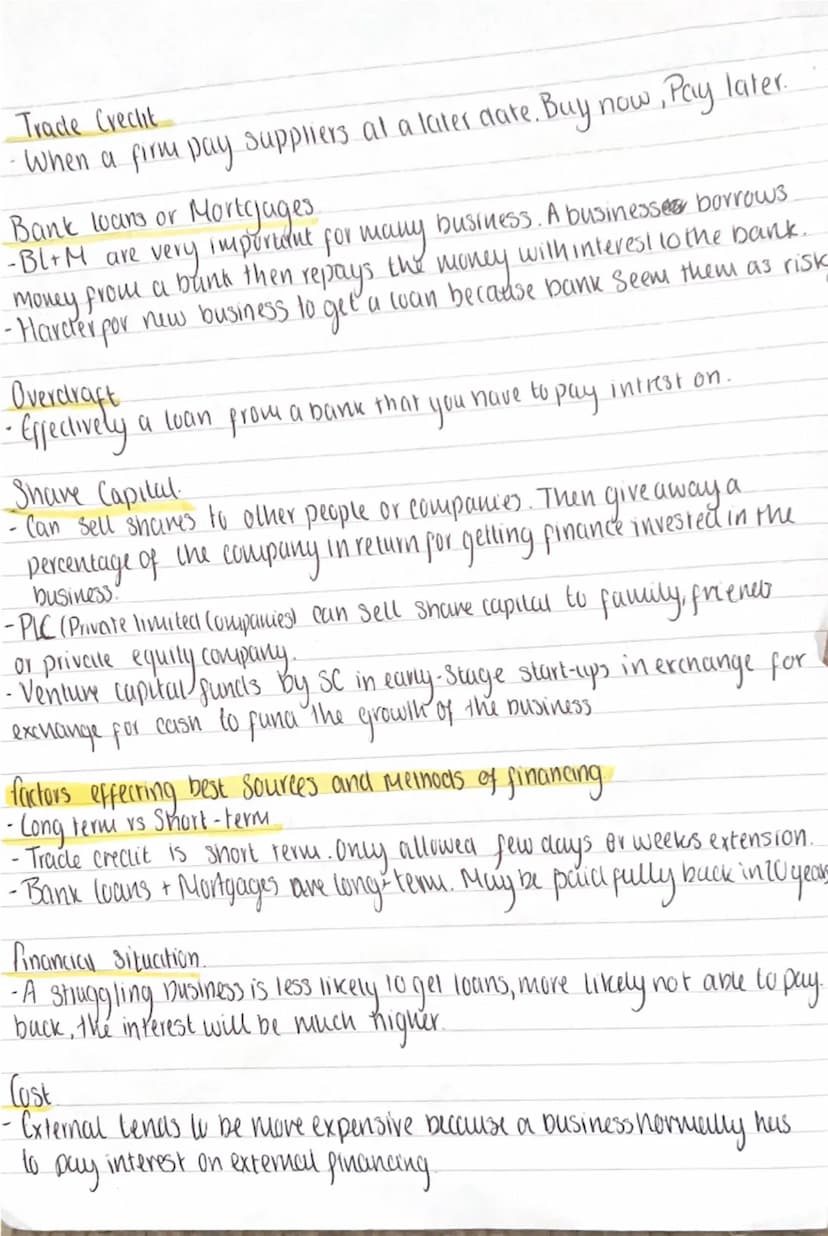 Trade Credit
- When a firm pay suppliers at a later date. Buy now, Pay later.
Bank loans or Mortgages
- BL+M are very important for many business. A business borrows
money from a bank then repays the money with interest to the bank.
- Harder for new business to get a loan because bank seem them as risk
Overdraft
- Effectively a loan from a bank that you have to pay intrest on.
Share Capital.
- Can sell shares to other people or companies. Then give away a
percentage of the company in return for getting finance invested in the
business.
- PLC (Private limited Companies) can sell share capital to family, friends
or private equity company.
- Venture capital funds by SC in early-stage start-ups in exchange for
exchange for cash to fund the growth of the business
factors effecting best sources and methods of financing
- Long term vs Short-term
- Trade credit is short term. Only allowed few days or weeks extension.
- Bank loans + Mortgages are long-term. May be paid fully back in 20 years
financial situation.
- A struggling business is less likely to get loans, more likely not able to pay
back, the interest will be much higher.
Cost
- External tends to be more expensive because a business normally has
to pay interest on external financing